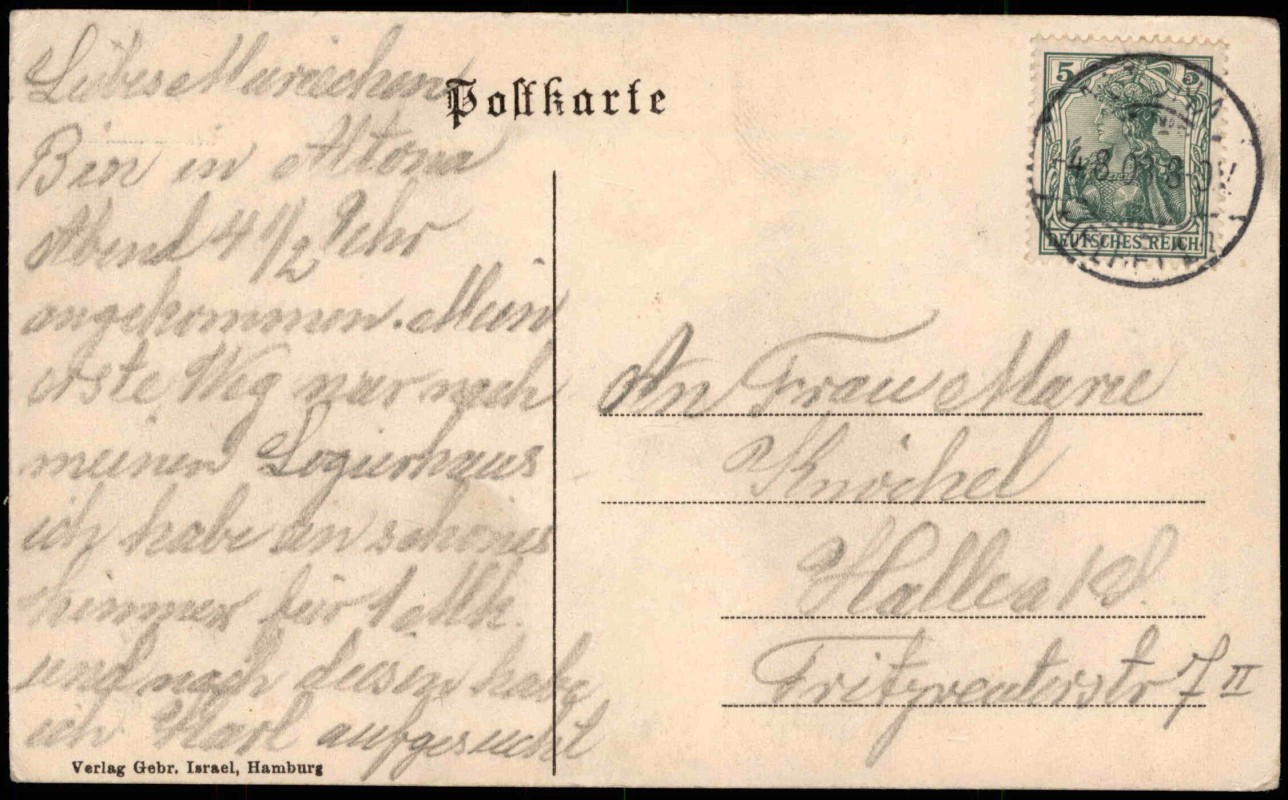 Liebes Mariechen
Bin in Altona
Abend 4 1/2 Uhr
angekommen. Mein
erste Weg war nach
meinen Logierhaus
ich habe ein schönes
Zimmer für 1 Mk.
und nach diesem habe
ich Karl aufgesucht
Verlag Gebr. Israel, Hamburg
Postkarte
5 5
DEUTSCHES REICH
4.8.0 8-9V
An Frau Marie
Knöchel
Halle a/S.
Fritzreuterstr 7 II